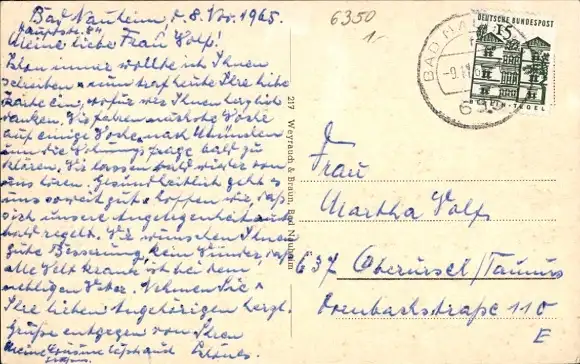 Bad Nauheim, d. 8. Nov. 1965.
Hauptstr.
Meine liebe Frau Wolf!
Schon immer wollte ich Ihnen
schreiben, nun traf heute Ihre liebe
Karte ein, wofür wir Ihnen herzlich
danken. Wir haben nächste Woche
auf einige Woche nach München
um die Wohnungsfrage bald zu
klären. Wir lassen bald wieder von
uns hören. Gesundheitlich geht es
uns soweit gut, hoffen wir, daß
sich unsere Angelegenheit auch
bald regelt. Wir wünschen Ihnen
gute Besserung, kein Wunder, daß
alle Welt krank ist bei dem
nebligen Wetter. Nehmen Sie &
Ihre lieben Angehörigen herzl.
Grüße entgegen von Ihren
6350
1.-
DEUTSCHE BUNDESPOST
15
BERLIN-TEGEL
BAD NA
217 Weyrauch & Braun, Bad Nauheim
Frau
Martha Wolf
637 Oberursel/Taunus
110
E